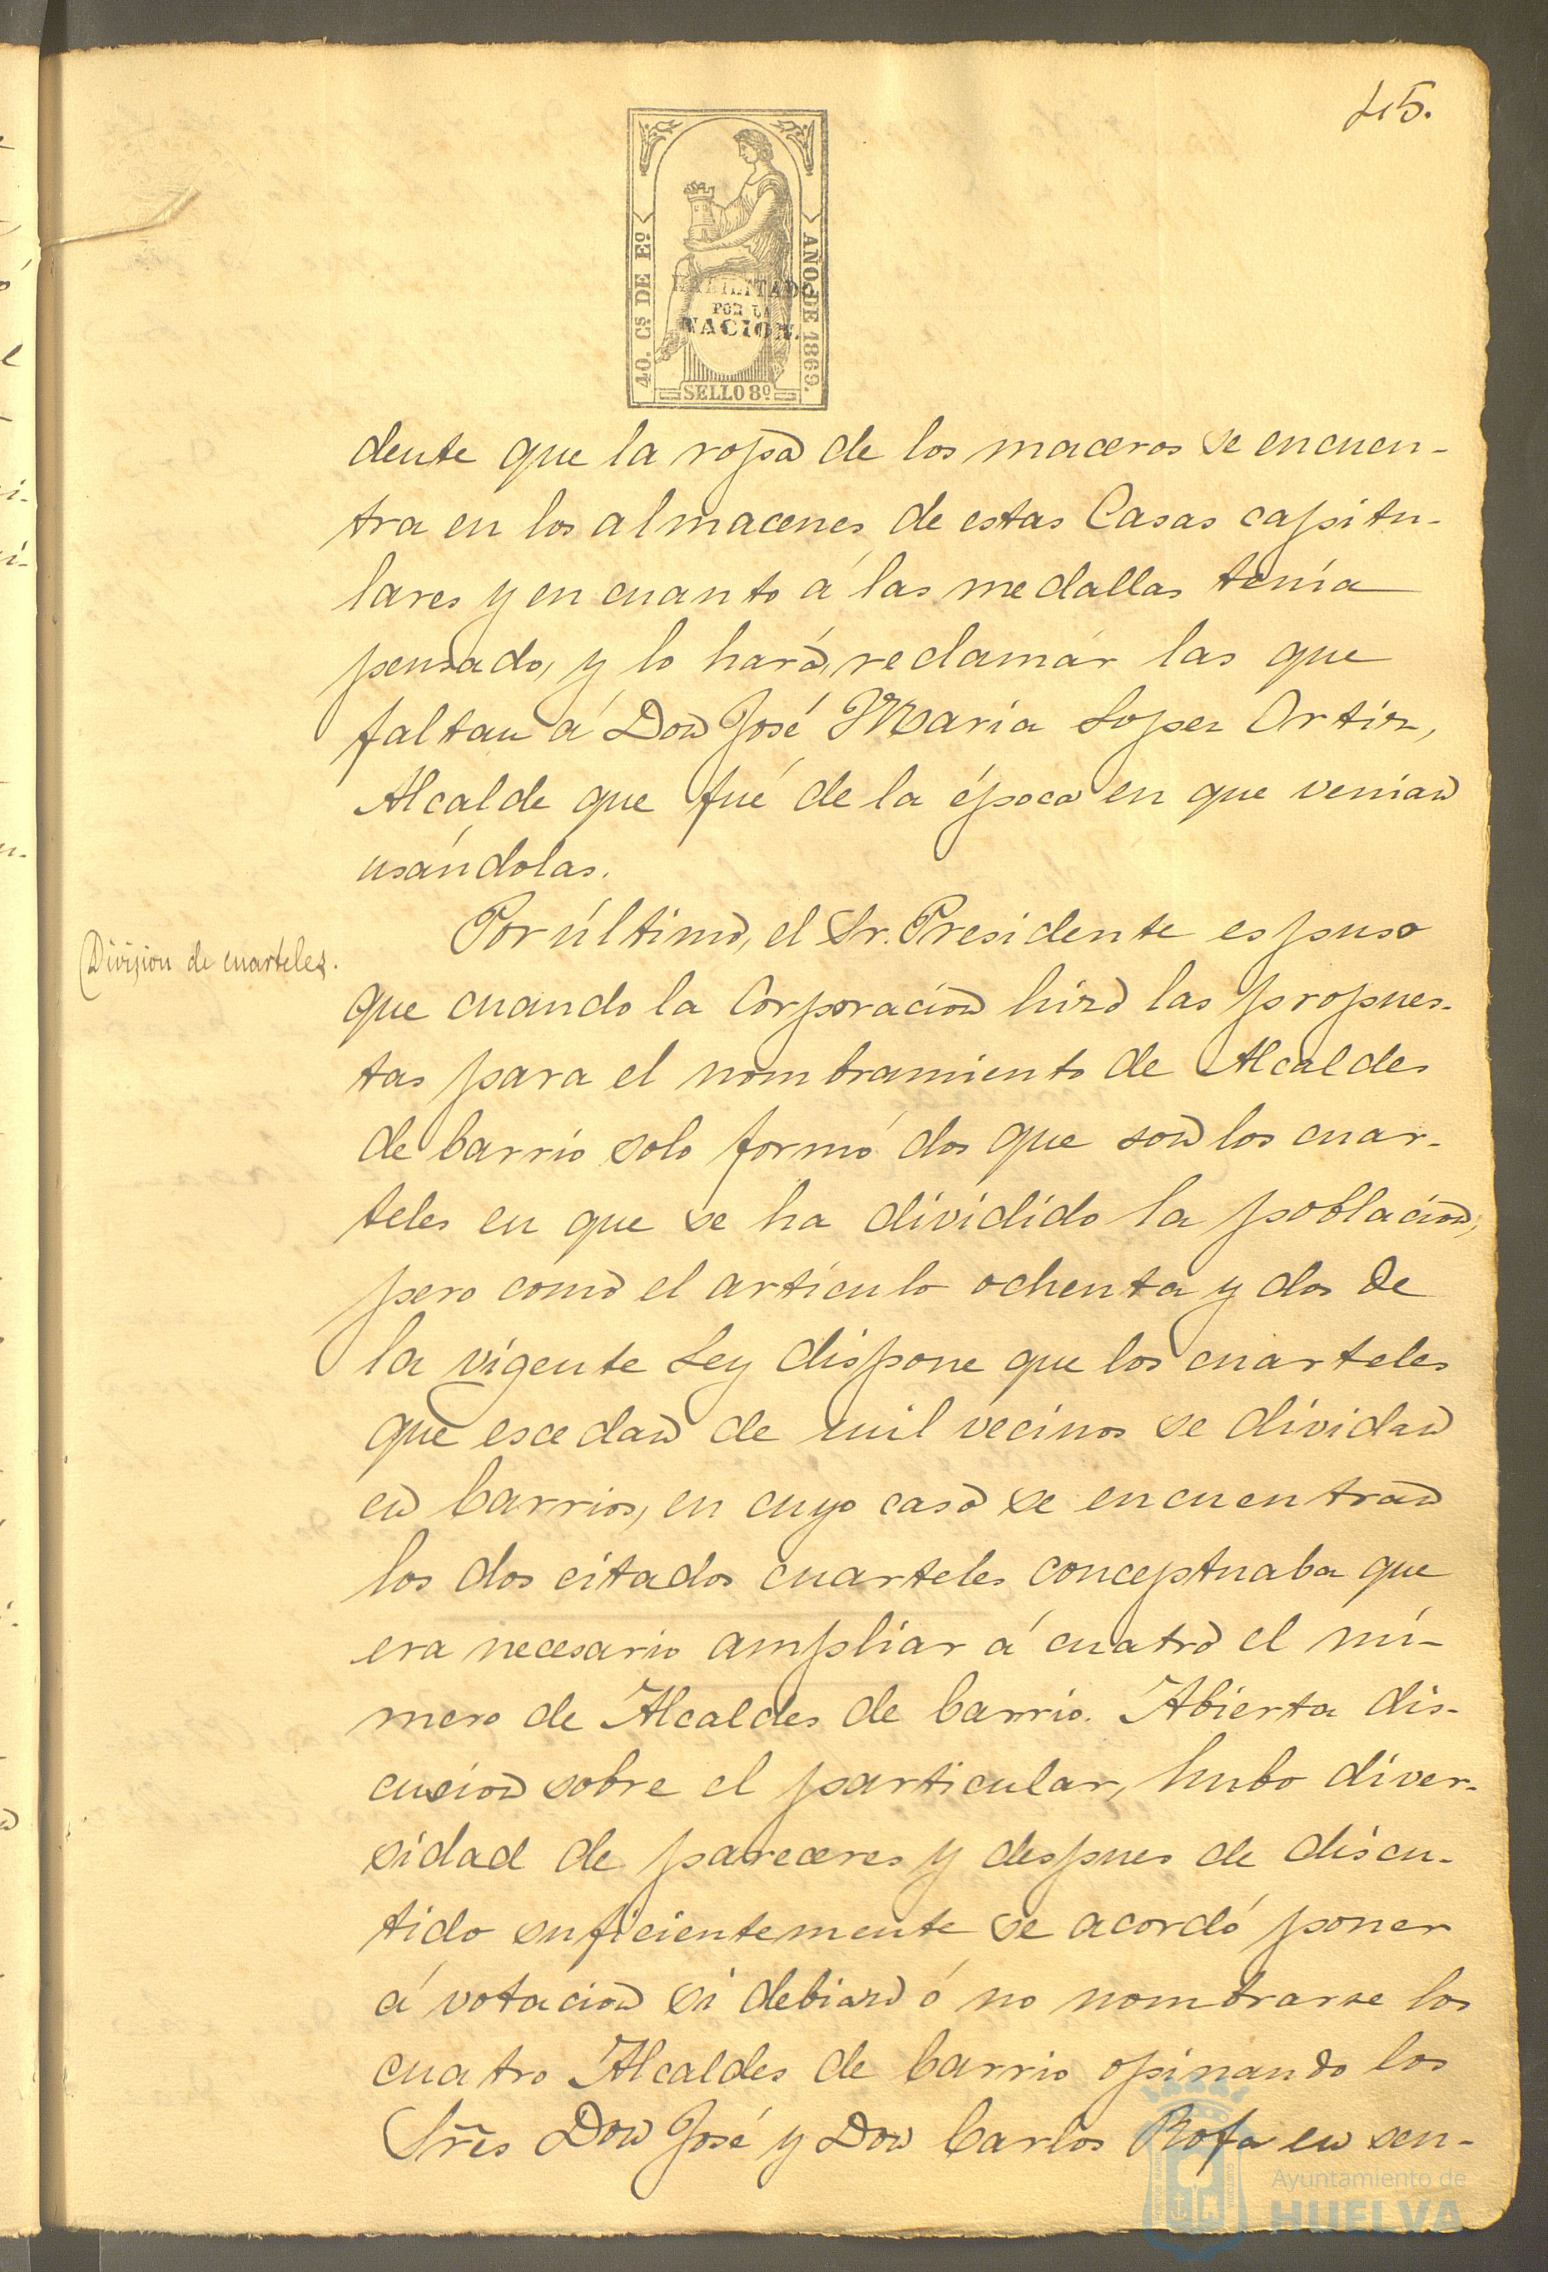 45.
40. Cs. DE Eº
AÑO DE 1869.
HABILITADO
POR LA
NACION.
SELLO 8º
dente que la ropa de los maceros se encuen-
tra en los almacenes de estas Casas capitu-
lares y en cuanto á las medallas tenía
pensado, y lo hará, reclamár las que
faltan á Don José Maria Lopez Ortiz,
Alcalde que fué de la época en que venian
usándolas.
Division de cuarteles.
Por último, el Sr. Presidente espuso
que cuando la Corporacion hizo las propues-
tas para el nombramiento de Alcaldes
de barrio solo formó dos que son los cuar-
teles en que se ha dividido la poblacion,
pero como el artículo ochenta y dos de
la vigente Ley dispone que los cuarteles
que escedan de mil vecinos se dividan
en barrios, en cuyo caso se encuentran
los dos citados cuarteles conceptuaba que
era necesario ampliar á cuatro el nú-
mero de Alcaldes de barrio. Abierta dis-
cusion sobre el particular, hubo diver-
sidad de pareceres y despues de discu-
tido suficientemente se acordó poner
á votacion si debian ó no nombrarse los
cuatro Alcaldes de barrio opinando los
Sres Don José y Don Carlos Rofa en sen-
Ayuntamiento de
HUELVA